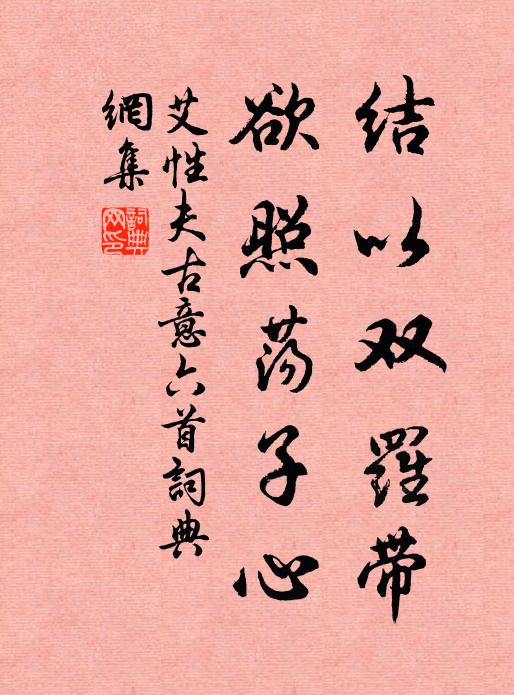 结以双罗带
欲照荡子心
艾性夫古意六首詞典
網集
詞典网印